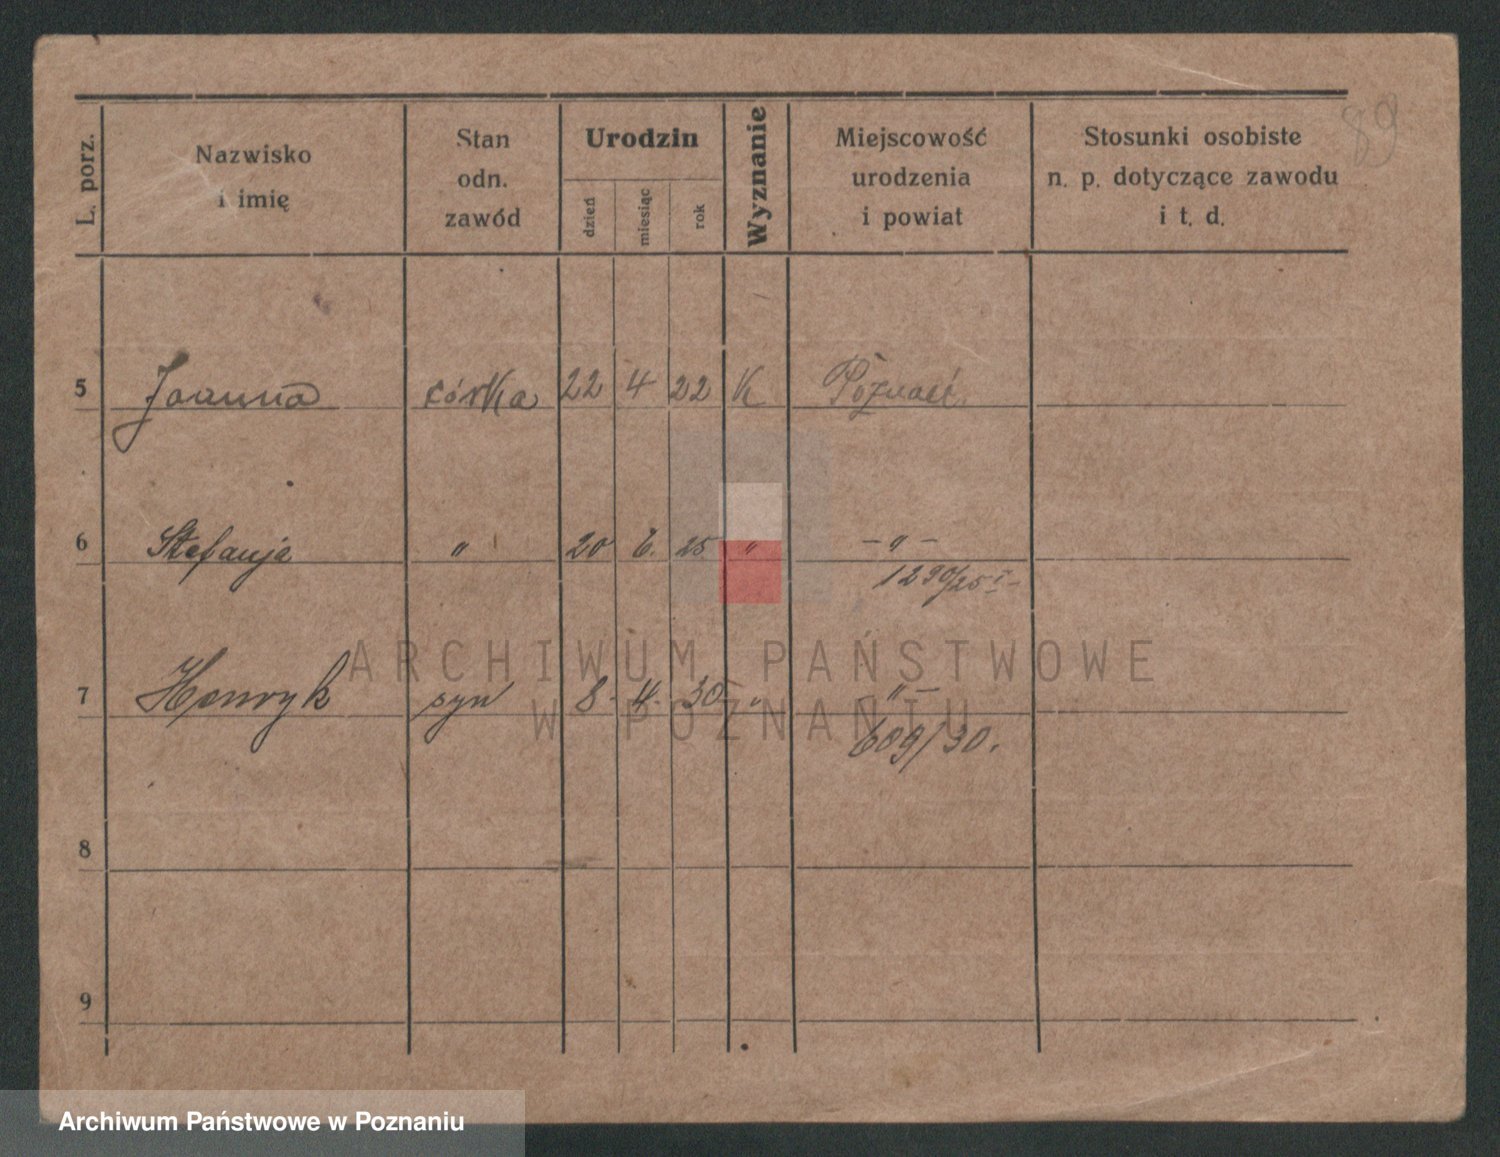 89
L. porz.
Nazwisko
i imię
Stan
odn.
zawód
Urodzin
dzień
miesiąc
rok
Wyznanie
Miejscowość
urodzenia
i powiat
Stosunki osobiste
n. p. dotyczące zawodu
i t. d.
5 Joanna córka 22 4 22 K Poznań
6 Stefanja " 20 6. 25 " -"-
1290/25 I-
7 Henryk syn 8. 4. 30 " "-
609/30.
8
9
ARCHIWUM PAŃSTWOWE
W POZNANIU
Archiwum Państwowe w Poznaniu